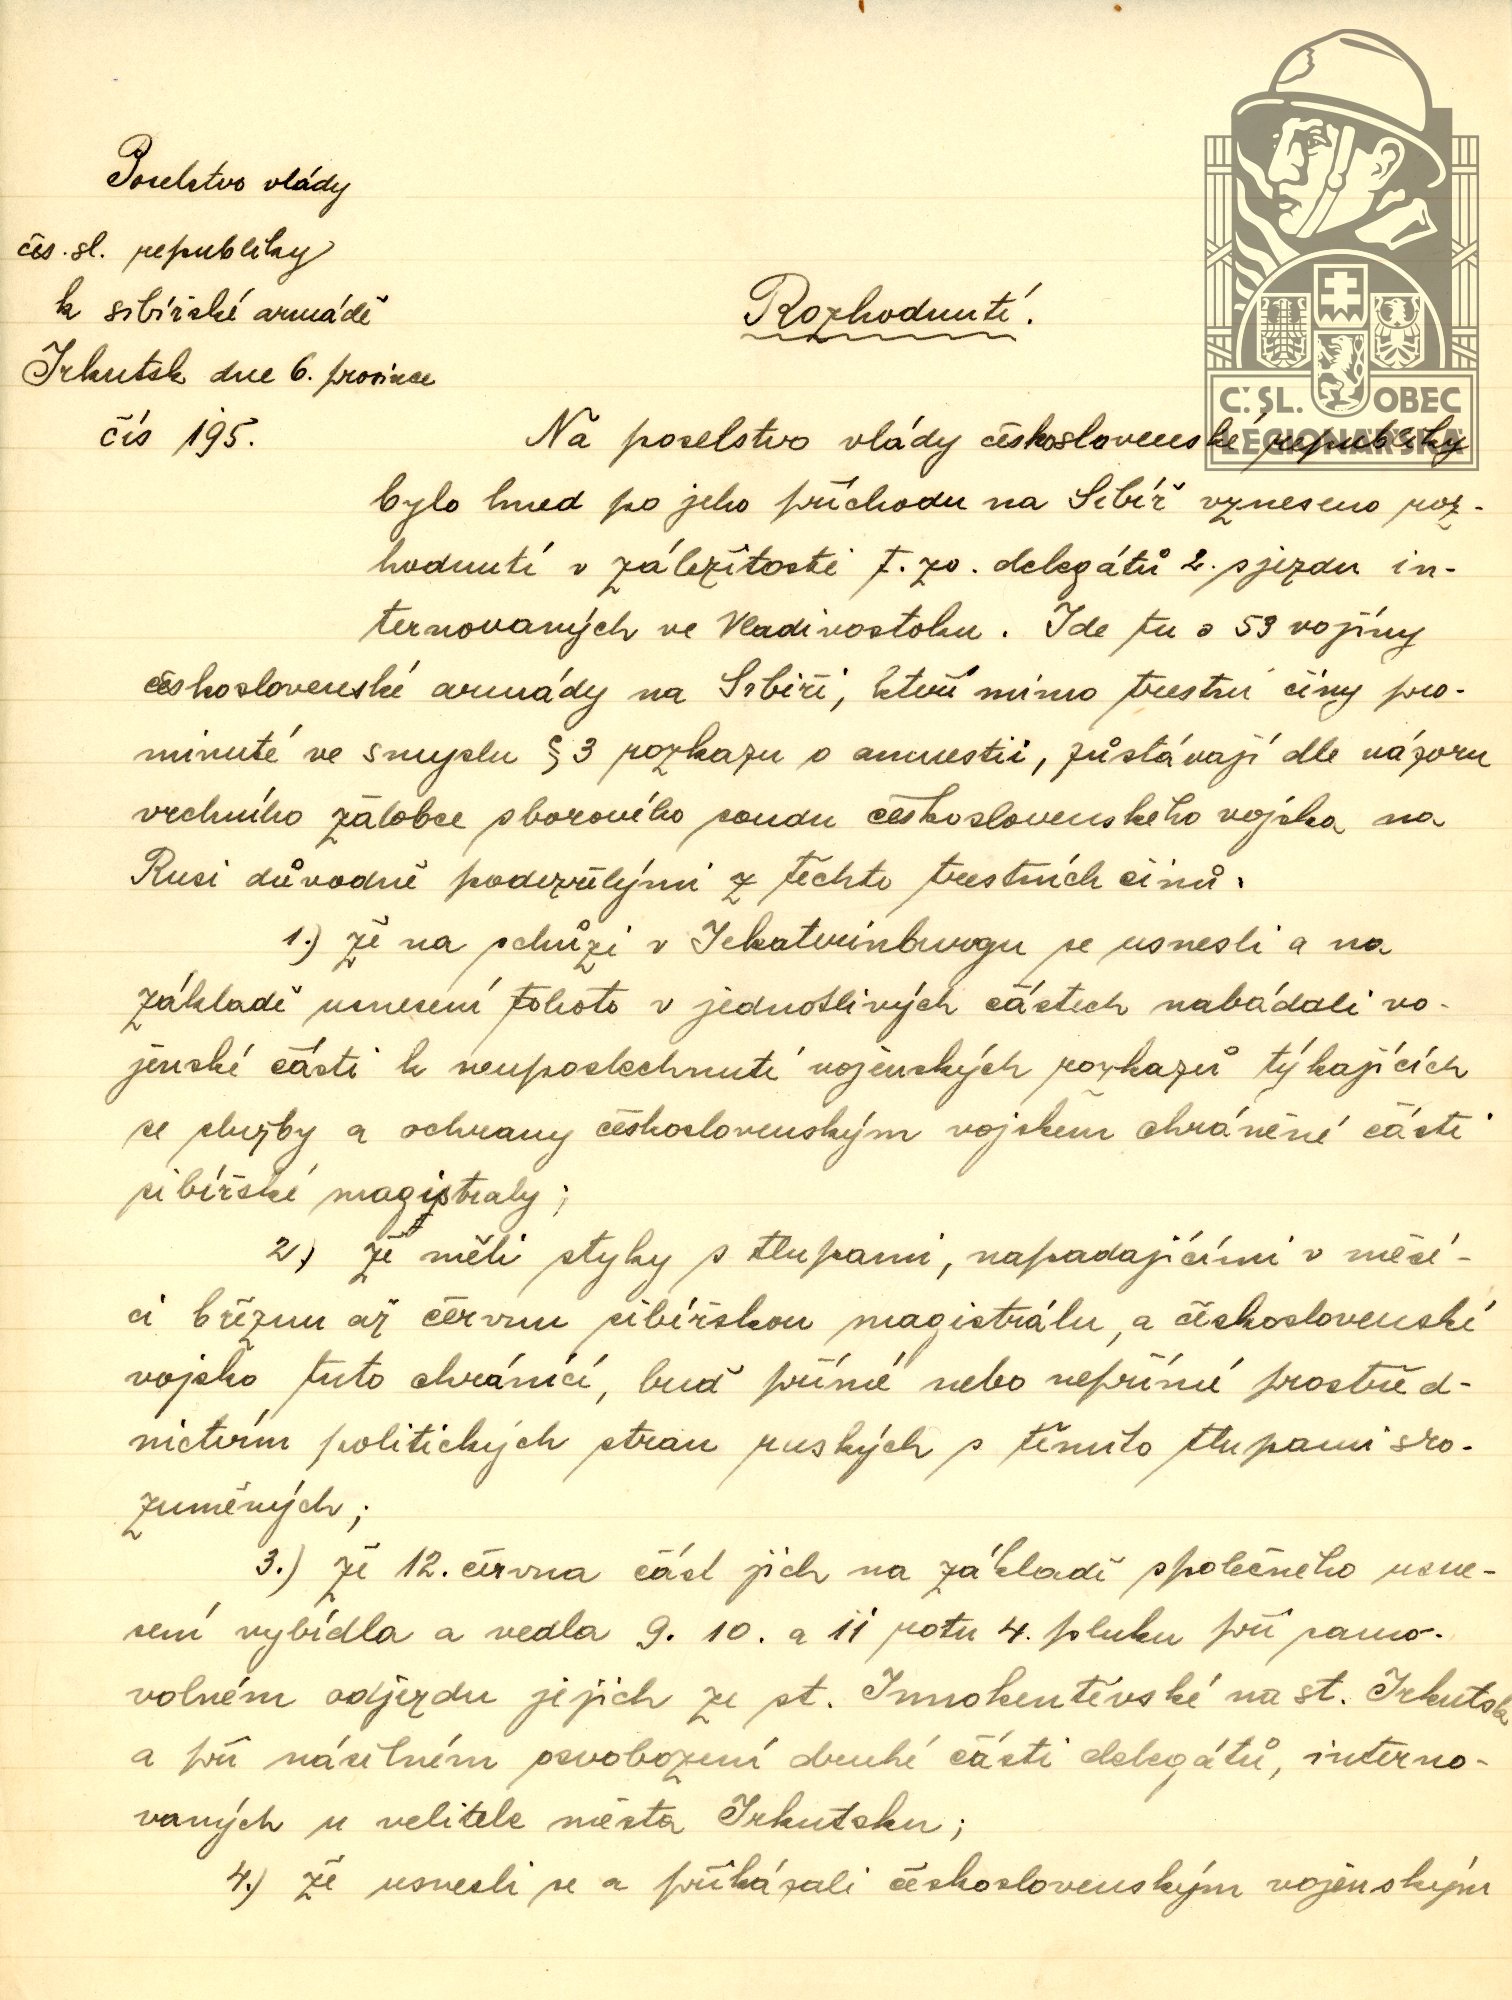 Poselstvo vlády
čes. sl. republiky
k sibiřské armádě
Irkutsk dne 6. prosince
čís 195.
Rozhodnutí.
Na poselstvo vlády československé republiky
bylo hned po jeho příchodu na Sibíř vzneseno roz-
hodnutí v záležitosti t. zv. delegátů 2. sjezdu in-
ternovaných ve Vladivostoku. Jde tu o 53 vojíny
československé armády na Sibiři, kteří mimo trestní činy pro-
minuté ve smyslu § 3 rozkazu o amnestii, zůstávají dle názoru
vrchního žalobce sborového soudu československého vojska na
Rusi důvodně podezřelými z těchto trestních činů.
1.) že na schůzi v Jekaterinburgu se usnesli a na
základě usnesení tohoto v jednotlivých částech nabádali vo-
jenské části k neuposlechnutí vojenských rozkazů týkajících
se služby a ochrany československým vojskem chráněné části
sibiřské magistraly;
2.) že měli styky s tlupami, napadajícími v měsí-
ci březnu až červnu sibiřskou magistrálu, a československé
vojsko tuto chránící, buď přímé nebo nepřímé prostřed-
nictvím politických stran ruských s těmito tlupami sro-
zuměných;
3.) že 12. června část jich na základě společného usne-
sení vybídla a vedla 9. 10. a 11 rotu 4. pluku při samo-
volném odjezdu jejich ze st. Innokentěvské na st. Irkutsk
a při násilném osvobození druhé části delegátů, interno-
vaných u velitele města Irkutsku;
4.) že usnesli se a přikázali československým vojenským
C. SL. OBEC
LEGIONÁŘSKÁ